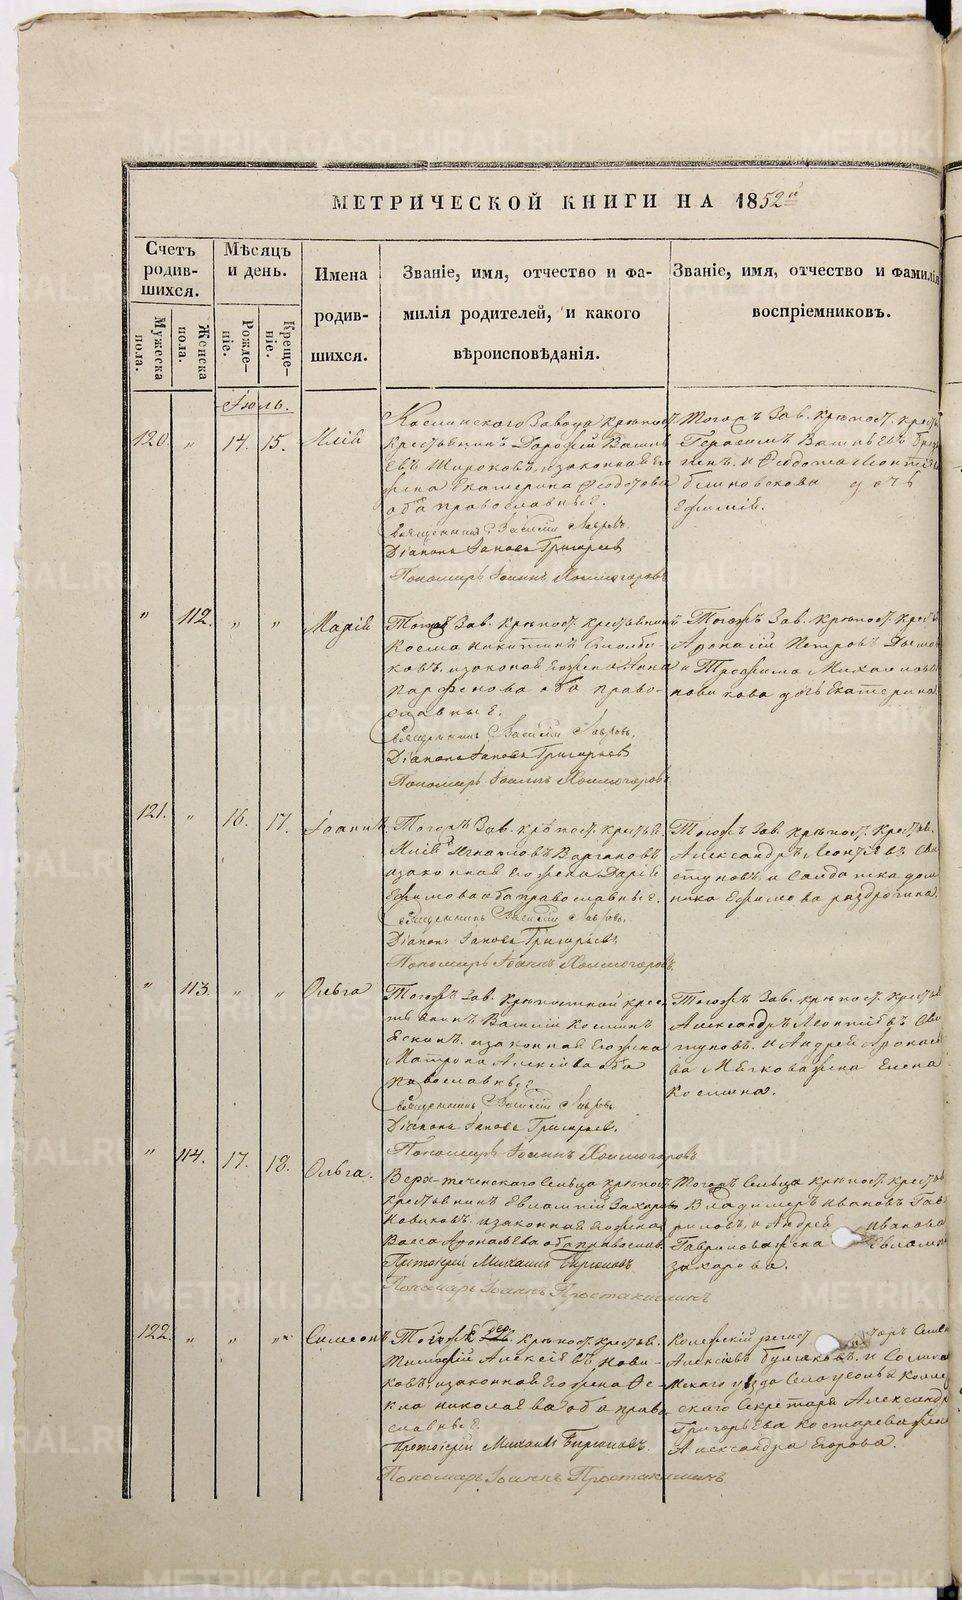 МЕТРИЧЕСКОЙ КНИГИ НА 1852й
Счетъ родив-
шихся.
Мѣсяцъ
и день.
Имена
родив-
шихся.
Званіе, имя, отчество и фа-
милія родителей, и какого
вѣроисповѣданія.
Званіе, имя, отчество и фамилія
воспріемниковъ.
Мужеска
пола.
Женска
пола.
Рожде-
ніе.
Креще-
ніе.
Іюль.
120. " 14. 15. Илій
Каслинскаго Завода крѣпост.
крестьянинъ Дорофей
Широковъ, изаконная его
жена Екатерина Федотова
оба православные.
Священникъ Василій Лавровъ.
Діаконъ Іаковъ Григорьевъ
Пономарь Іоаннъ Холмогоровъ
Тогожъ Зав. крѣпост. крест.
Герасимъ
Блиновскова дочь
" 112. " " Марія
Зав. крѣпост. крестьянинъ
Косма Никитинъ
ковъ, изаконая его жена Анна
Парфенова оба право-
славные.
Священникъ Василій Лавровъ,
Діаконъ Іаковъ Григорьевъ
Пономарь Іоаннъ Холмогоровъ
Тогожъ Зав. крѣпост. крест.
Афонасій Петровъ
и Трофима Михаилова
Новикова дочь Екатерина.
121. " 16. 17. Іоаннъ
Тогожъ Зав. крѣпост. крестьян.
Илій Игнатовъ Вargановъ
изаконная его жена Дарія
Ефимова оба православные.
Священникъ Василій Лавровъ,
Діаконъ Іаковъ Григорьевъ,
Пономарь Іоаннъ Холмогоровъ.
Тогожъ Зав. крѣпост. крест.
Александръ Леонтіевъ Сви-
стуновъ, и Солдатка Дом-
ника Ефимова
" 113. " " Ольга
Тогожъ Зав. крѣпостной крес-
тьянинъ Василій Косминъ
Ескинъ, изаконная его жена
Матрона Алексіева оба
православные.
Священникъ Василій Лавровъ
Діаконъ Іаковъ Григорьевъ.
Пономарь Іоаннъ Холмогоровъ
Тогожъ Зав. крѣпост. крестьян.
Александръ Леонтіевъ Сви-
стуновъ. и Андрея Афонась-
ва Мягкова жена Елена
Космина.
" 114. 17. 18. Ольга.
Верх-теченскаго Сельца крѣпост.
крестьянинъ Евлампій Захаровъ
Новиковъ, изаконная его жена
Васса Афонасьева оба православ.
Протоіерей Михаилъ Бирюковъ
Пономарь Іоаннъ Простакишинъ
Тогожъ Сельца крѣпост. крестьян.
Владимеръ Ивановъ Гав-
риловъ, и Андрея Иванова
Гаврилова жена Евламп.
Захарова.
122. " " " Симеонъ
Тойже дер. крѣпост. крестьян.
Тимофей Алексіевъ Нови-
ковъ, изаконная его жена Фе-
кла Николаева оба право-
славные.
Протоіерей Михаилъ Бирюковъ.
Пономарь Іоаннъ Простакишинъ
Симе.
Алексіевъ Булгаковъ. и
уѣзда
скаго Секретаря Александра
Григорьева Костарева жена
Александра Егорова.
METRIKI.GASO-URAL.RU